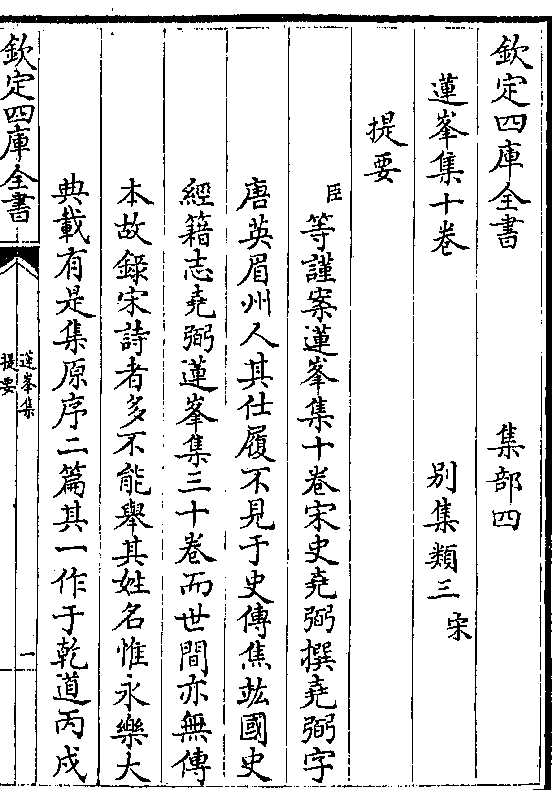 欽定四庫全書　集部四
蓮峯集十卷　別集類三宋
提要
臣等謹案蓮峯集十卷宋史堯弼撰堯弼字
唐英眉州人其仕履不見于史傳焦竑國史
經籍志堯弼蓮峯集三十卷而世間亦無傳
本故録宋詩者多不能舉其姓名惟永樂大
典載有是集原序二篇其一作于乾道丙戌
欽定四庫全書
蓮峯集
提要
一